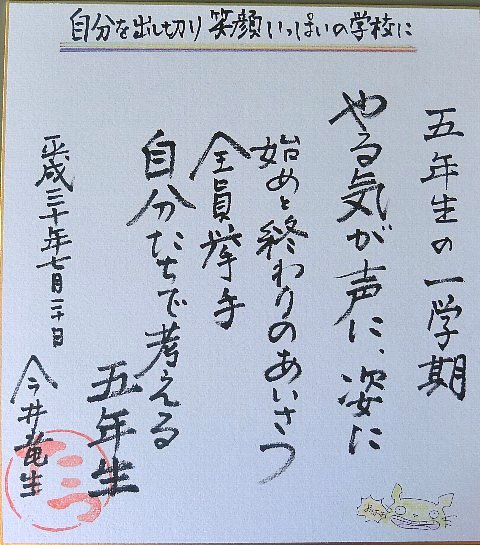 自分を出し切り笑顔いっぱいの学校に
五年生の一学期
やる気が声に、姿に
始めと終わりのあいさつ
全員挙手
自分たちで考える
五年生
平成三十年七月二十日
今井竜生